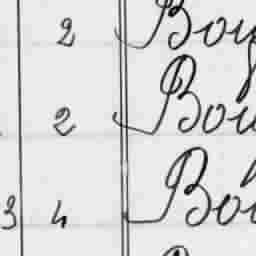 2 Boy
2 Bou
3 4 Bo